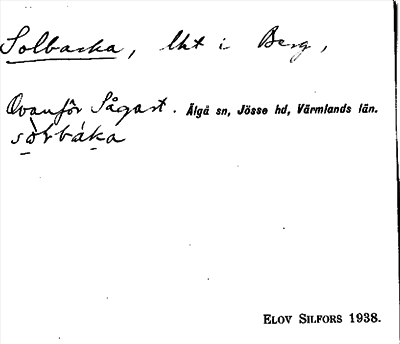 Solbacka, lht i Berg,
Ovanför Sågart. Älgå sn, Jösse hd, Värmlands län.
sòrbáka
ELOV SILFORS 1938.